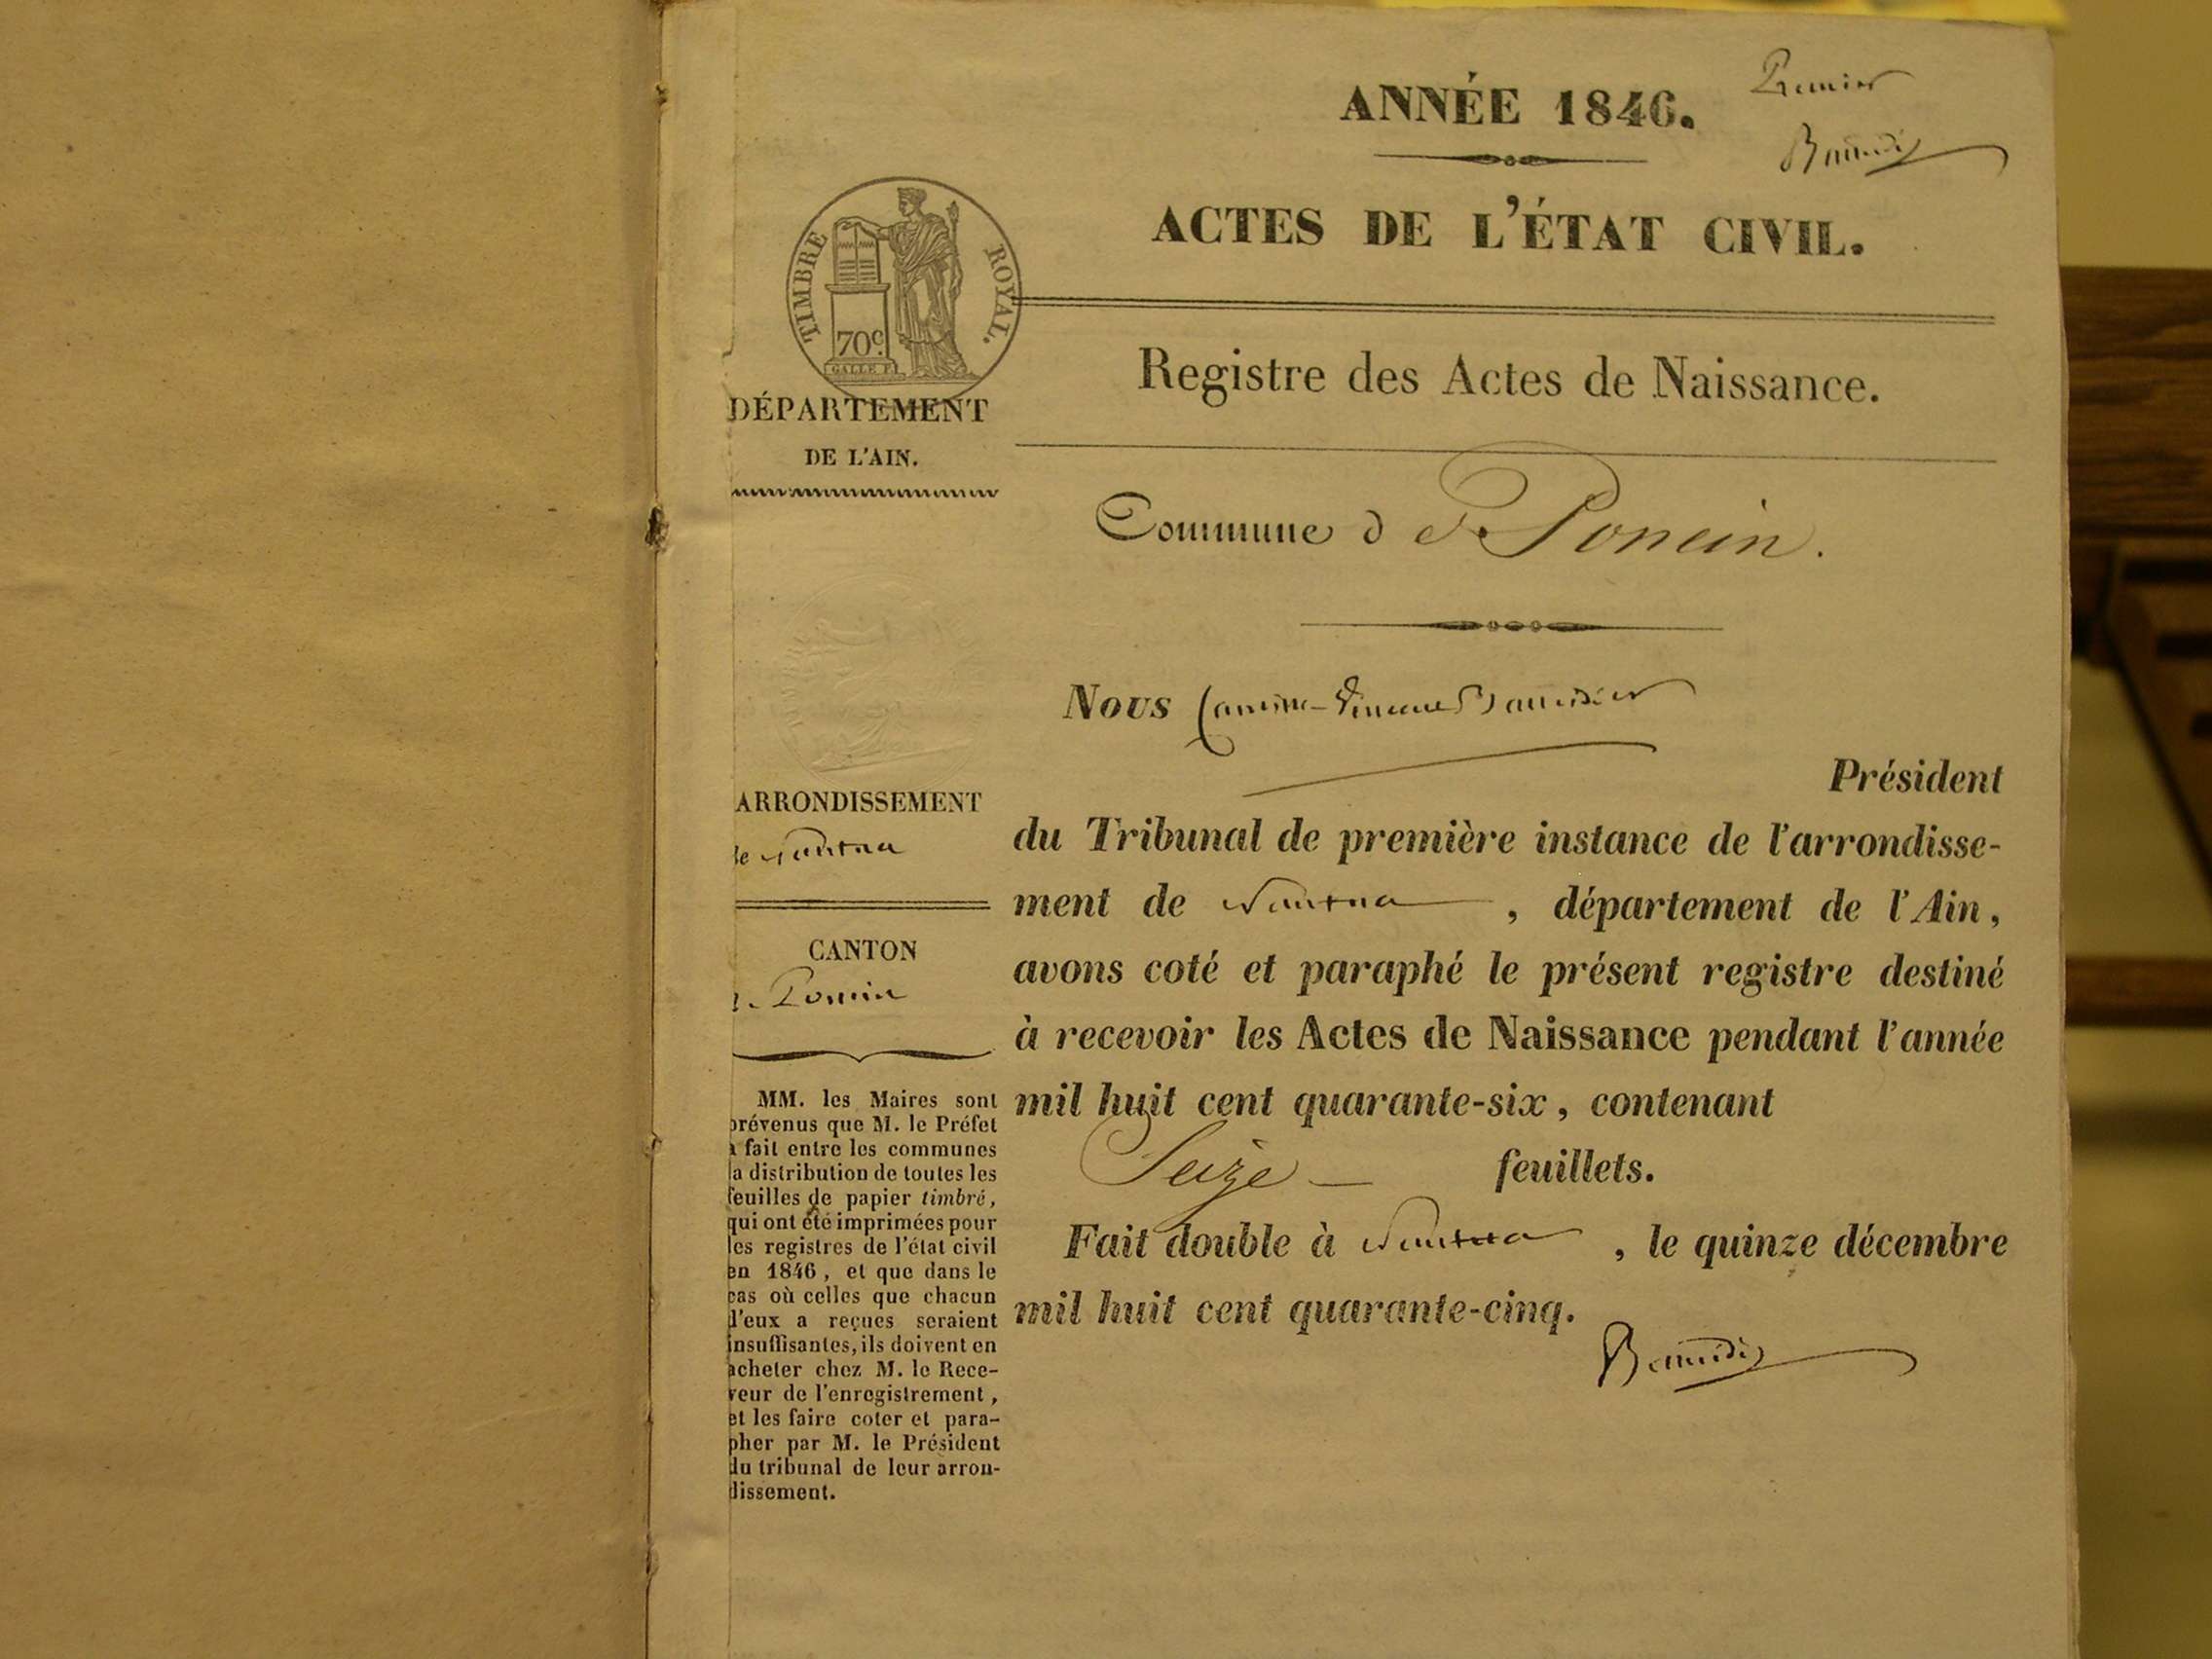 ANNÉE 1846.
Premier
ACTES DE L'ÉTAT CIVIL.
TIMBRE ROYAL.
70c.
GALLE F.
DÉPARTEMENT
DE L'AIN.
Registre des Actes de Naissance.
Commune d e Poncin.
Nous
Président
du Tribunal de première instance de l'arrondisse-
ment de Nantua, département de l'Ain,
avons coté et paraphé le présent registre destiné
à recevoir les Actes de Naissance pendant l'année
mil huit cent quarante-six, contenant
Seize — feuillets.
Fait double à Nantua, le quinze décembre
mil huit cent quarante-cinq.
ARRONDISSEMENT
de Nantua
CANTON
de Poncin
MM. les Maires sont
prévenus que M. le Préfet
a fait entre les communes
la distribution de toutes les
feuilles de papier timbré,
qui ont été imprimées pour
les registres de l'état civil
en 1846, et que dans le
cas où celles que chacun
d'eux a reçues seraient
insuffisantes, ils doivent en
acheter chez M. le Rece-
veur de l'enregistrement,
et les faire coter et para-
pher par M. le Président
du tribunal de leur arron-
dissement.